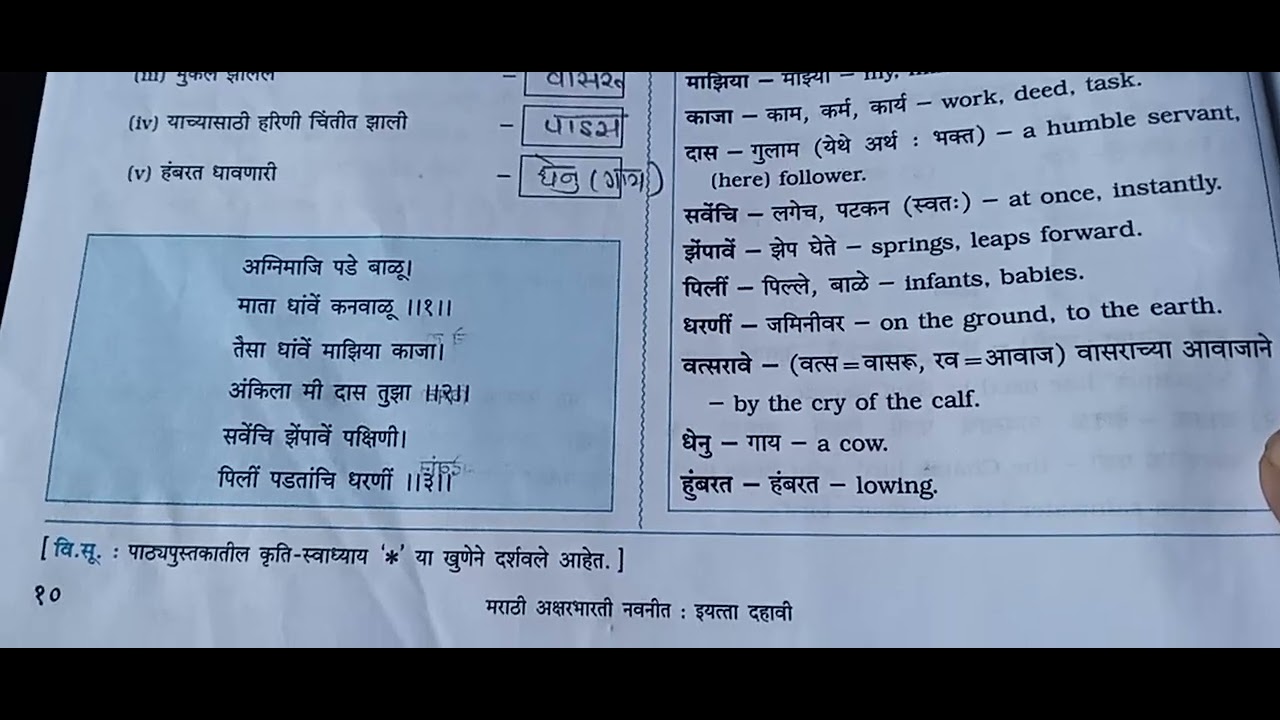 (iii) मुकेले झालेले – वासरू
(iv) याच्यासाठी हरिणी चिंतीत झाली – पाडस
(v) हंबरत धावणारी – धेनु (गाय)
अग्निमाजि पडे बाळू।
माता धांवें कनवाळू ।।१।।
तैसा धांवें माझिया काजा।
अंकिला मी दास तुझा ।।२।।
सवेंचि झेंपावें पक्षिणी।
पिलीं पडतांचि धरणीं ।।३।।
माझिया – माझ्या – my,
काजा – काम, कर्म, कार्य – work, deed, task.
दास – गुलाम (येथे अर्थ : भक्त) – a humble servant,
(here) follower.
सवेंचि – लगेच, पटकन (स्वतः) – at once, instantly.
झेंपावें – झेप घेते – springs, leaps forward.
पिलीं – पिल्ले, बाळे – infants, babies.
धरणीं – जमिनीवर – on the ground, to the earth.
वत्सरावे – (वत्स = वासरू, रव = आवाज) वासराच्या आवाजाने
– by the cry of the calf.
धेनु – गाय – a cow.
हुंबरत – हंबरत – lowing.
[ वि.सू. : पाठ्यपुस्तकातील कृति-स्वाध्याय ‘*’ या खुणेने दर्शवले आहेत. ]
१०
मराठी अक्षरभारती नवनीत : इयत्ता दहावी